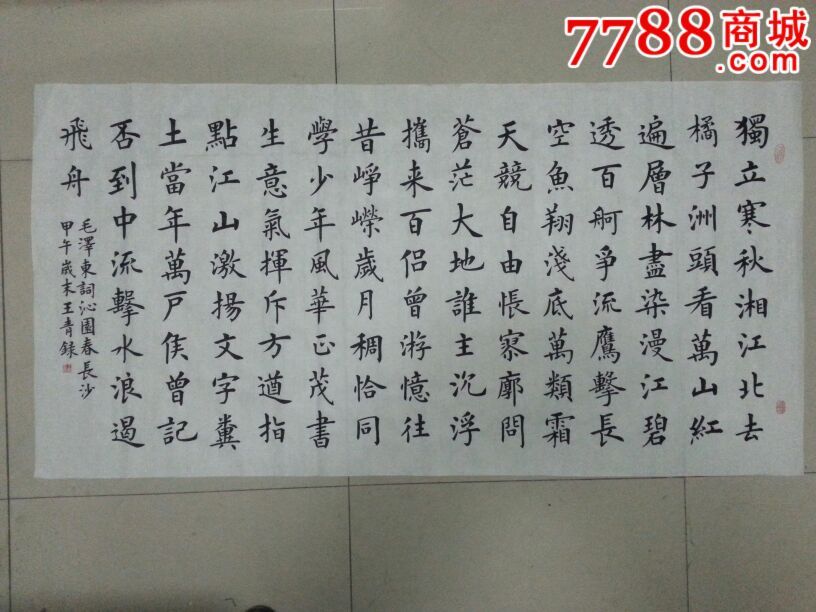 7788商城
.com
獨立寒秋湘江北去
橘子洲頭看萬山紅
遍層林盡染漫江碧
透百舸爭流鷹擊長
空魚翔淺底萬類霜
天競自由悵寥廓問
蒼茫大地誰主沉浮
攜来百侶曾游憶往
昔崢嶸歲月稠恰同
學少年風華正茂書
生意氣揮斥方遒指
點江山激揚文字糞
土當年萬戶侯曾記
否到中流擊水浪遏
飛舟
毛澤東詞沁園春長沙
甲午歲末王青録